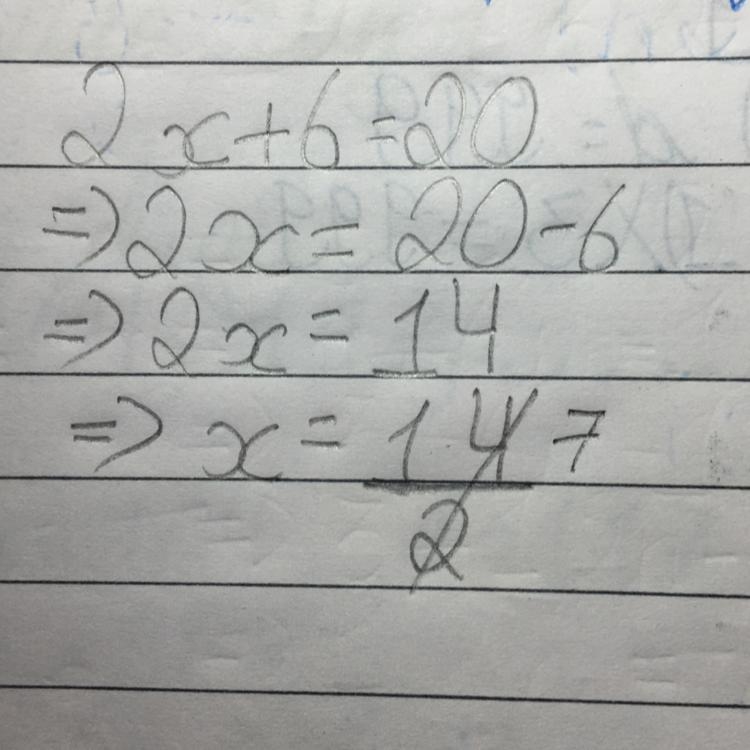 2x+6=20
⇒2x=20-6
⇒2x=14
⇒x=14/2 7